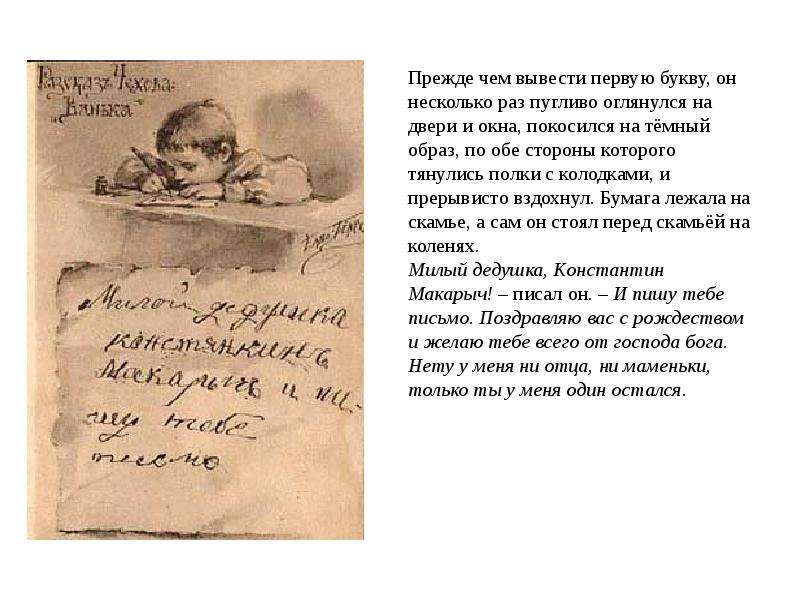 Разсказъ Чехова:
"Ванька"
Милой дедушка
констянкинъ
Макарычь и пи-
шу тебе
письмо
Прежде чем вывести первую букву, он
несколько раз пугливо оглянулся на
двери и окна, покосился на тёмный
образ, по обе стороны которого
тянулись полки с колодками, и
прерывисто вздохнул. Бумага лежала на
скамье, а сам он стоял перед скамьёй на
коленях.
Милый дедушка, Константин
Макарыч! – писал он. – И пишу тебе
письмо. Поздравляю вас с рождеством
и желаю тебе всего от господа бога.
Нету у меня ни отца, ни маменьки,
только ты у меня один остался.